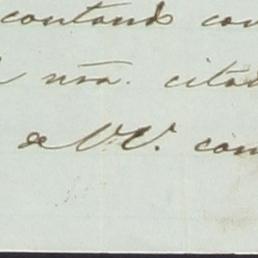 contando con
nra. cita
de V.V. com